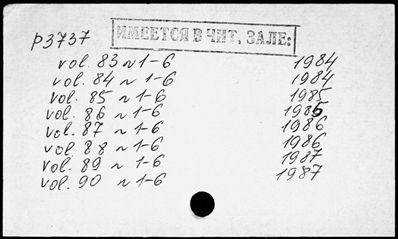 р3737
ИМЕЕТСЯ В ЧИТ. ЗАЛЕ:
vol. 83 N 1-6 1984
vol. 84 N 1-6 1984
vol. 85 N 1-6 1985
vol. 86 N 1-6 1985
vol. 87 N 1-6 1986
vol. 88 N 1-6 1986
vol. 89 N 1-6 1987
vol. 90 N 1-6 1987